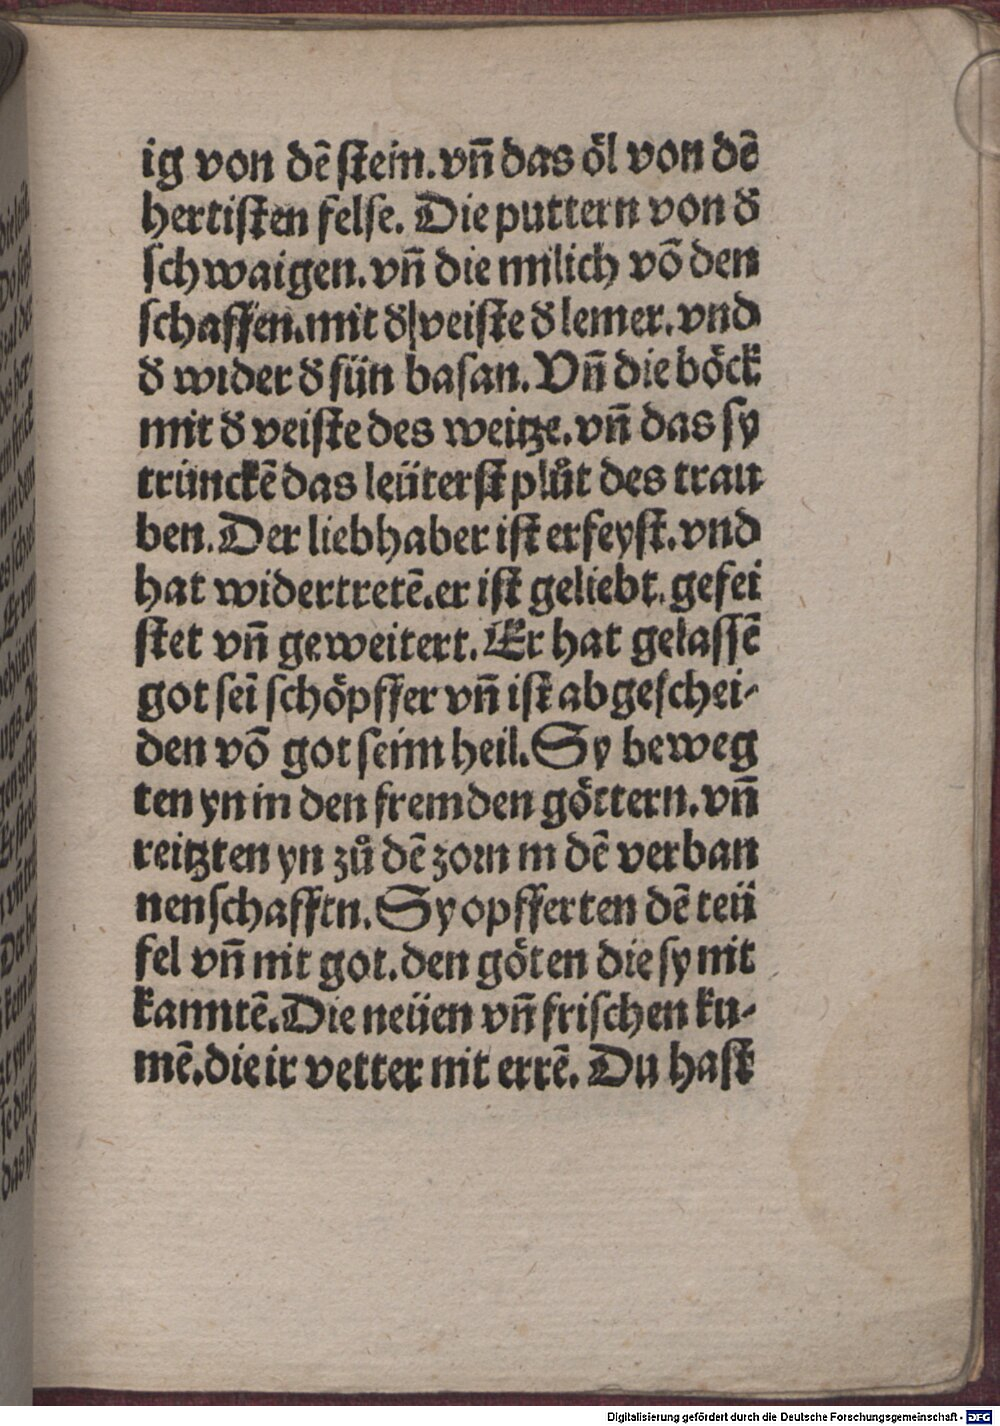 ig von dē ſtein. vn̄ das öl von dē
hertiſten felſe. Die puttern von d̕
ſchwaigen. vn̄ die milich vō den
ſchaffen. mit d̕ veiſte d̕ lemer. vnd
d̕ wider d̕ ſün baſan. Vn̄ die böck
mit d̕ veiſte des weitze. vn̄ das ſy
trünckē das leüterſt plůt des trau
ben. Der liebhaber iſt erfeyſt. vnd
hat widertretē. er iſt geliebt. gefei
ſtet vn̄ geweitert. Er hat gelaſſē
got ſeī ſchöpffer vn̄ iſt abgeſchei-
den vō got ſeim heil. Sy beweg
ten yn in den fremden göttern. vn̄
reitzten yn zů dē zorn in dē verban
nenſchafftn. Sy opfferten dē teü
fel vn̄ nit got. den göten die ſy nit
kanntē. Die neüen vn̄ friſchen ku-
mē. die ir vetter nit errē. Du haſt
Digitalisierung gefördert durch die Deutsche Forschungsgemeinschaft - DFG